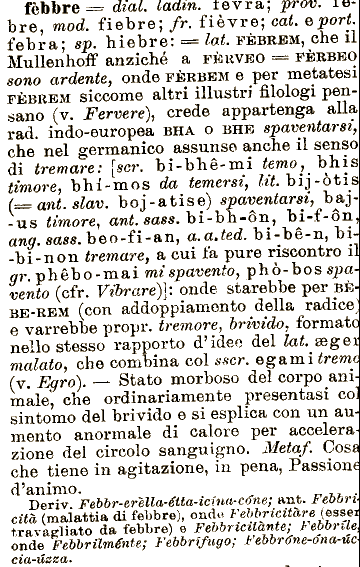 fèbbre = dial. ladin. fevra; prov. fe-
bre, mod. fiebre; fr. fièvre; cat. e port.
febra; sp. hiebre: = lat. FÈBREM, che il
Mullenhoff anziché a FÈRVEO = FÈRBEO
sono ardente, onde FÈRBEM e per metatesi
FÈBREM siccome altri illustri filologi pen-
sano (v. Fervere), crede appartenga alla
rad. indo-europea BHA O BHE spaventarsi,
che nel germanico assunse anche il senso
di tremare: [scr. bi-bhê-mi temo, bhis
timore, bhí-mos da temersi, lit. bij-òtis
(= ant. slav. boj-atise) spaventarsi, baj-
-us timore, ant. sass. bi-bh-ôn, bi-f-ôn,
ang. sass. beo-fi-an, a.a.ted. bi-bê-n, bi-
-bi-non tremare, a cui fa pure riscontro il
gr. phêbo-mai mi spavento, phò-bos spa-
vento (cfr. Vibrare)]: onde starebbe per BÈ-
BE-REM (con addoppiamento della radice)
e varrebbe propr. tremore, brivido, formato
nello stesso rapporto d'idee del lat. æger
malato, che combina col sscr. egami tremo
(v. Egro). — Stato morboso del corpo ani-
male, che ordinariamente presentasi col
sintomo del brivido e si esplica con un au-
mento anormale di calore per accelera-
zione del circolo sanguigno. Metaf. Cosa
che tiene in agitazione, in pena, Passione
d'animo.
Deriv. Febbr-erèlla-étta-icína-cóne; ant. Febbri-
cità (malattia di febbre), onde Febbricitàre (esser
travagliato da febbre) e Febbricitànte; Febbrìle,
onde Febbrilménte; Febbrífugo; Febbróne-óna-úc-
cia-úzza.